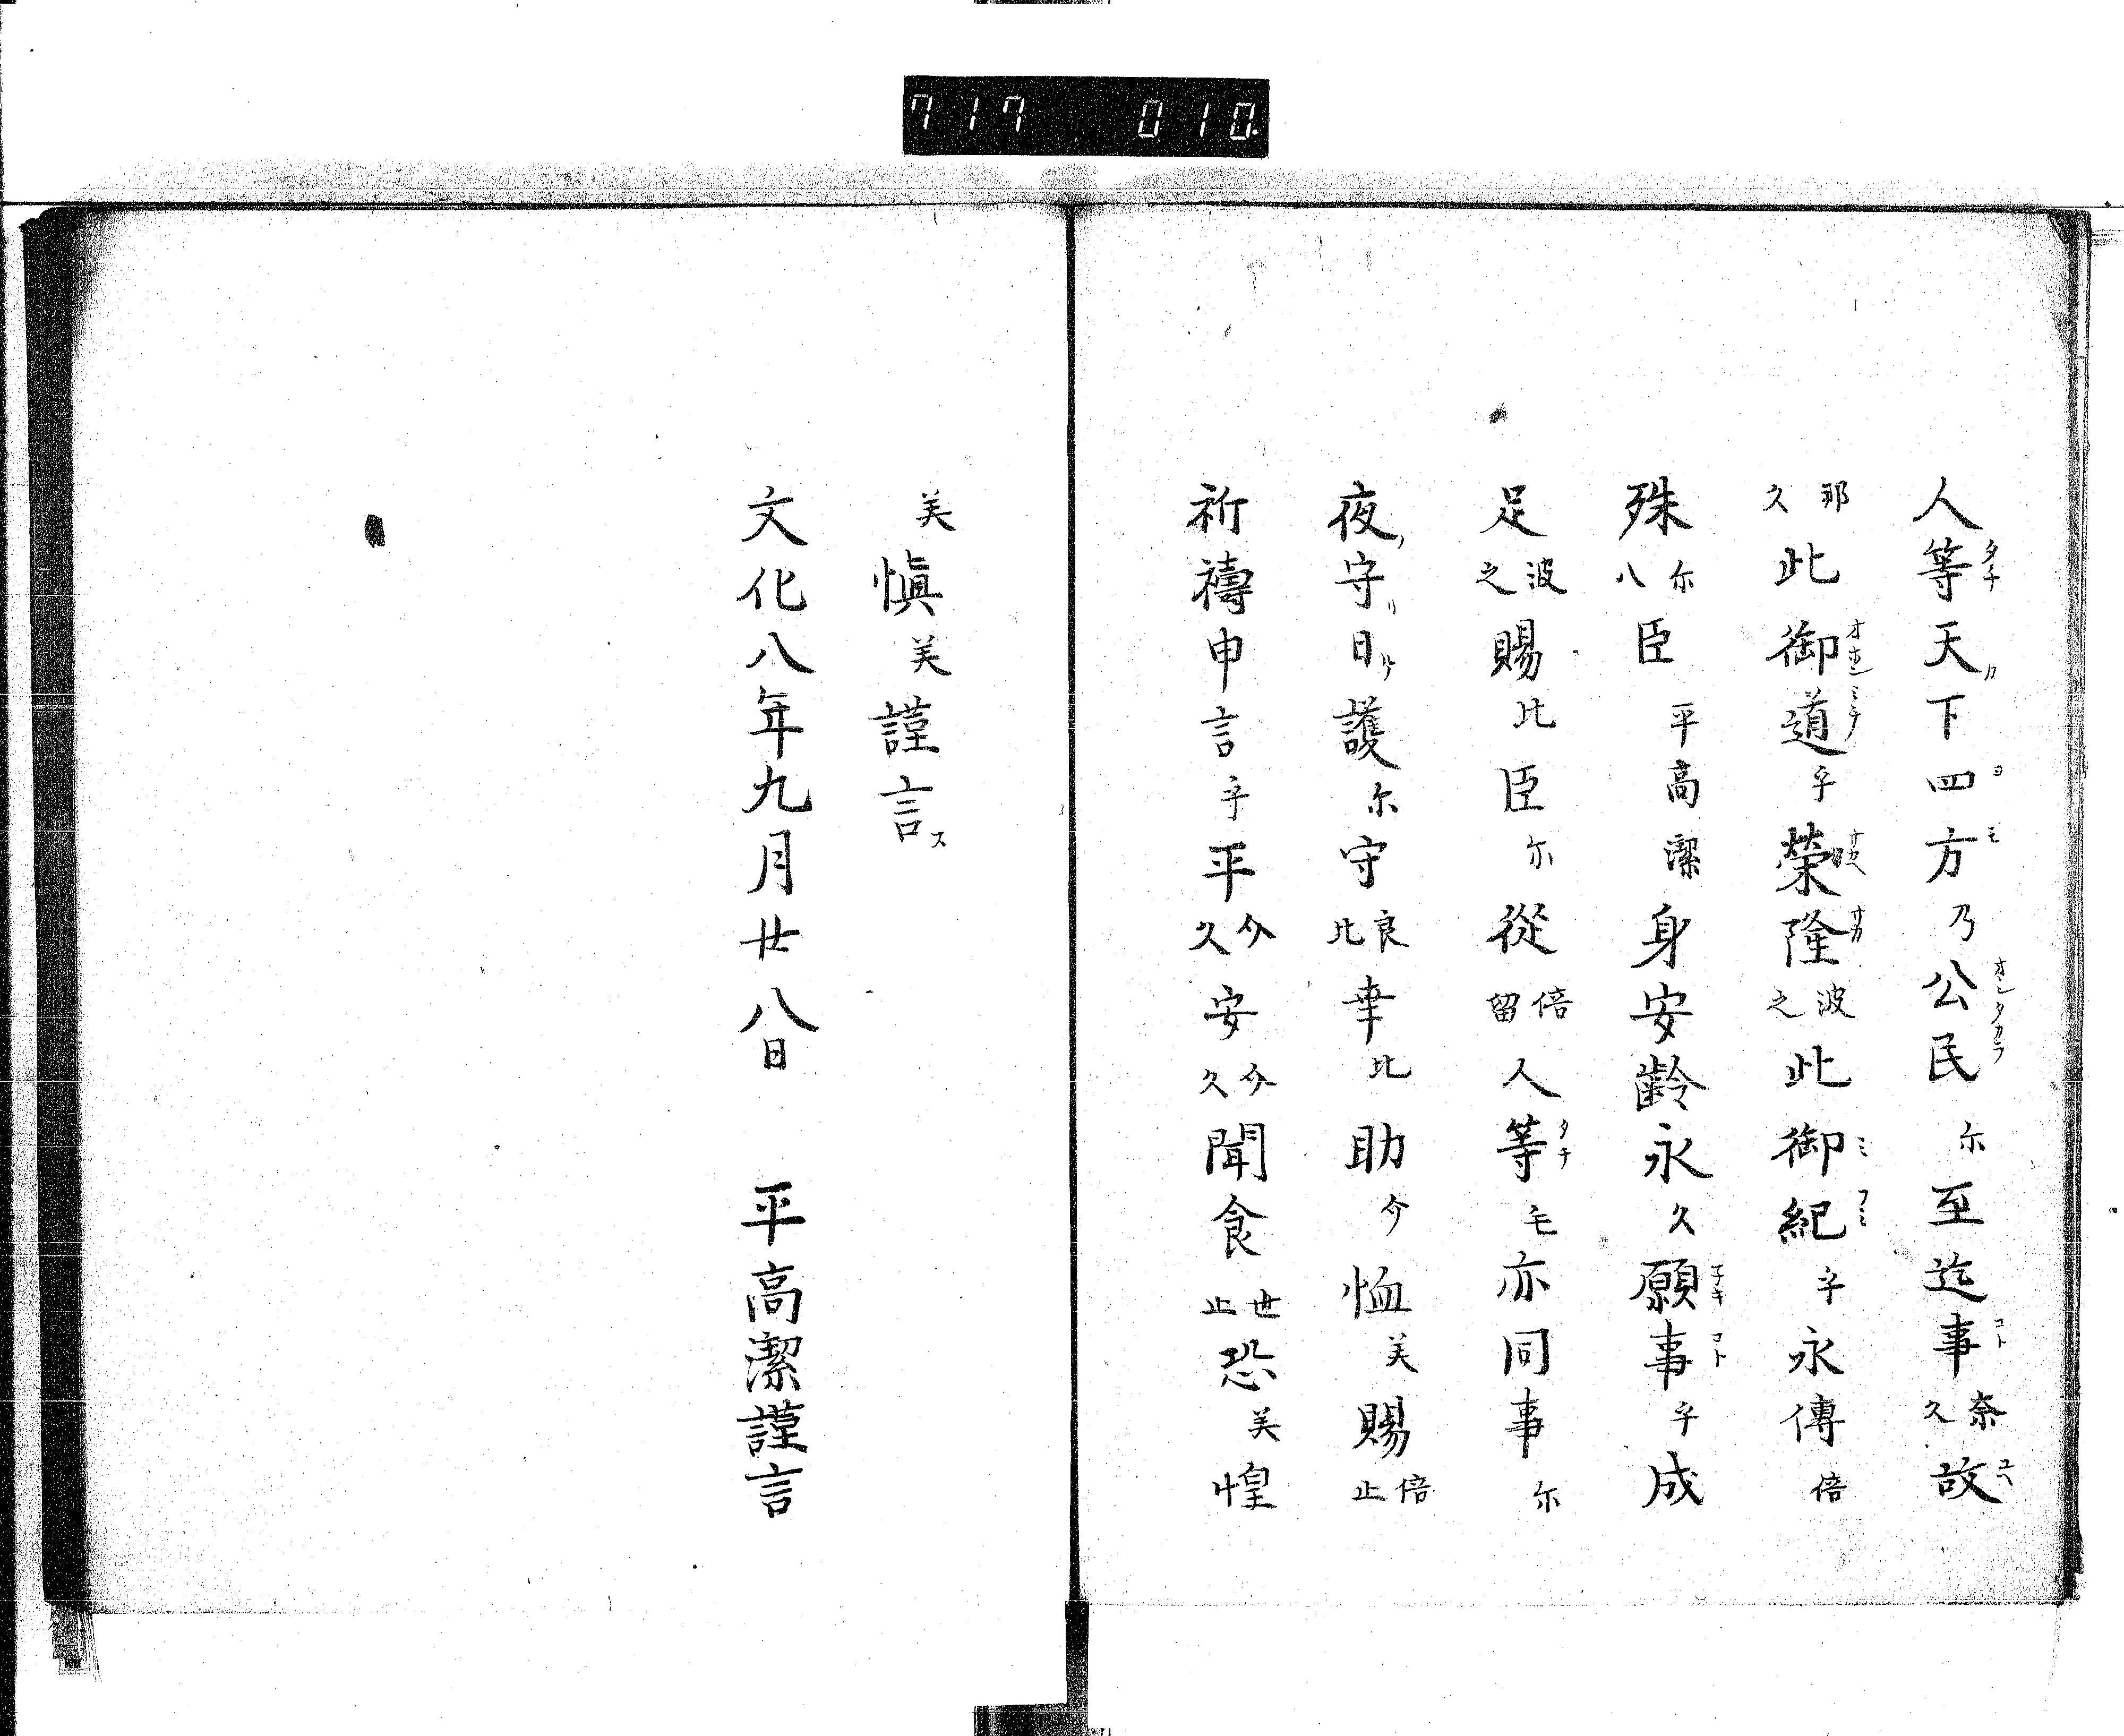 717 010.
人等天下四方乃公民尓至迄事奈久故
那久此御道乎榮隆波之此御紀乎永傳倍
殊尓八臣平高潔身安齡永久願事乎成
足波之賜比臣尓從倍留人等毛亦同事尓
夜守日護尓守良比幸比助今恤美賜倍止
祈禱申言乎平今久安今久聞食世止恐美惶
美愼美謹言ス
文化八年九月廿八日 平高潔謹言